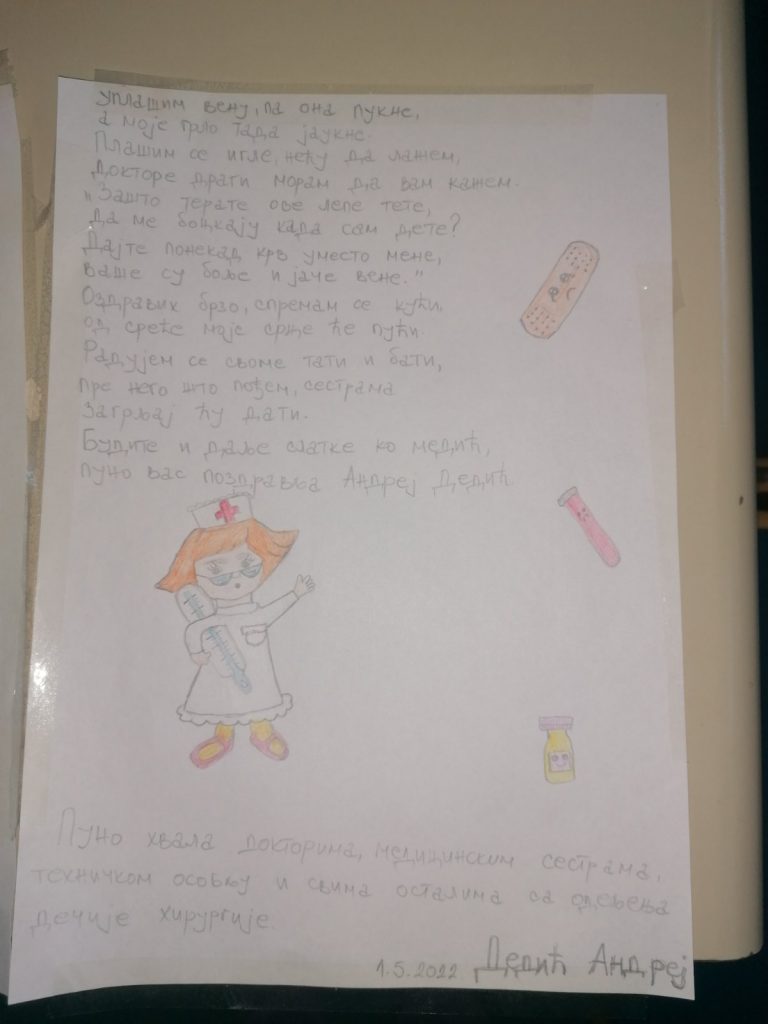 уплашим вену, па она пукне,
а моје грло тада јаукне.
Плашим се игле, нећу да лажем,
Докторе драги морам да вам кажем.
"Зашто терате ове лепе тете,
Да ме боцкају када сам дете?
Дајте понекад крв уместо мене,
ваше су боље и јаче вене."
Оздравих брзо, спремам се кући,
од среће моје срце ће пући.
Радујем се своме тати и бати,
пре него што пођем, сестрама
загрљај ћу дати.
Будите и даље слатке ко медић,
пуно вас поздравља Андреј Дедић.
Пуно хвала докторима, медицинским сестрама,
техничком особљу и свима осталима са одељења
дечије хирургије.
1.5.2022 Дедић Андреј